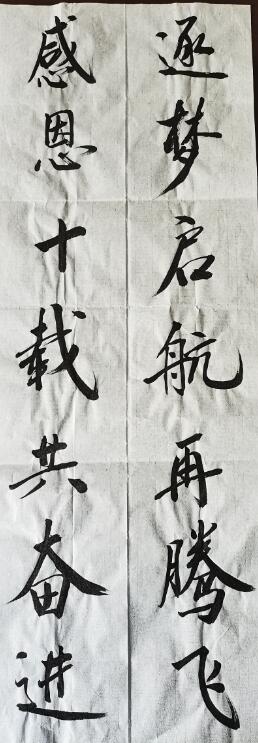 逐梦启航再腾飞
感恩十载共奋进